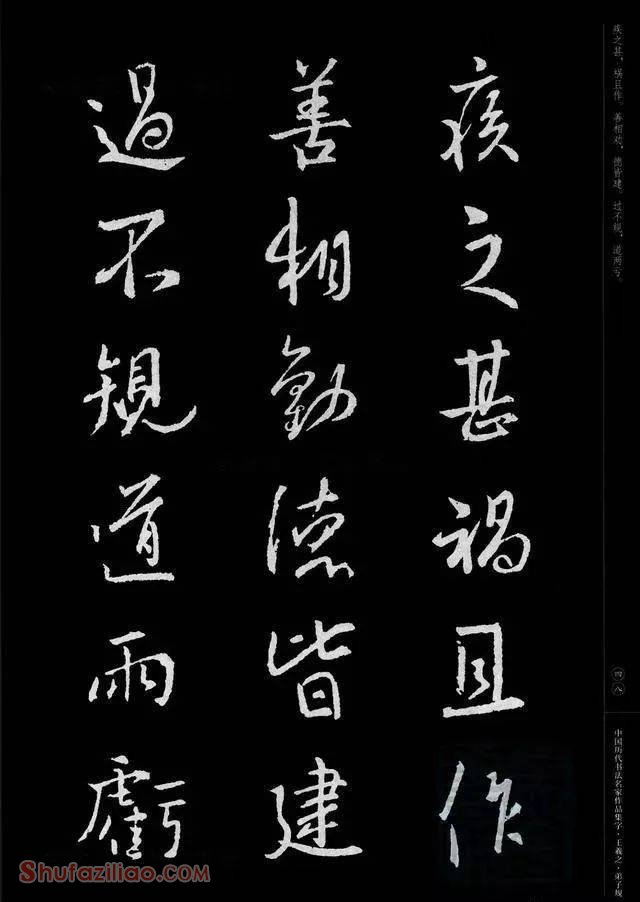 疾之甚，祸且作。善相劝，德皆建。过不规，道两亏。
疾之甚禍且作
善相勸德皆建
過不規道兩虧
四八
中国历代书法名家作品集字·王羲之·弟子规
Shufaziliao.com